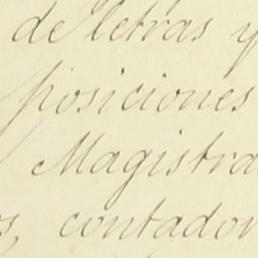 de letras y
posiciones
Magistra
s, contador